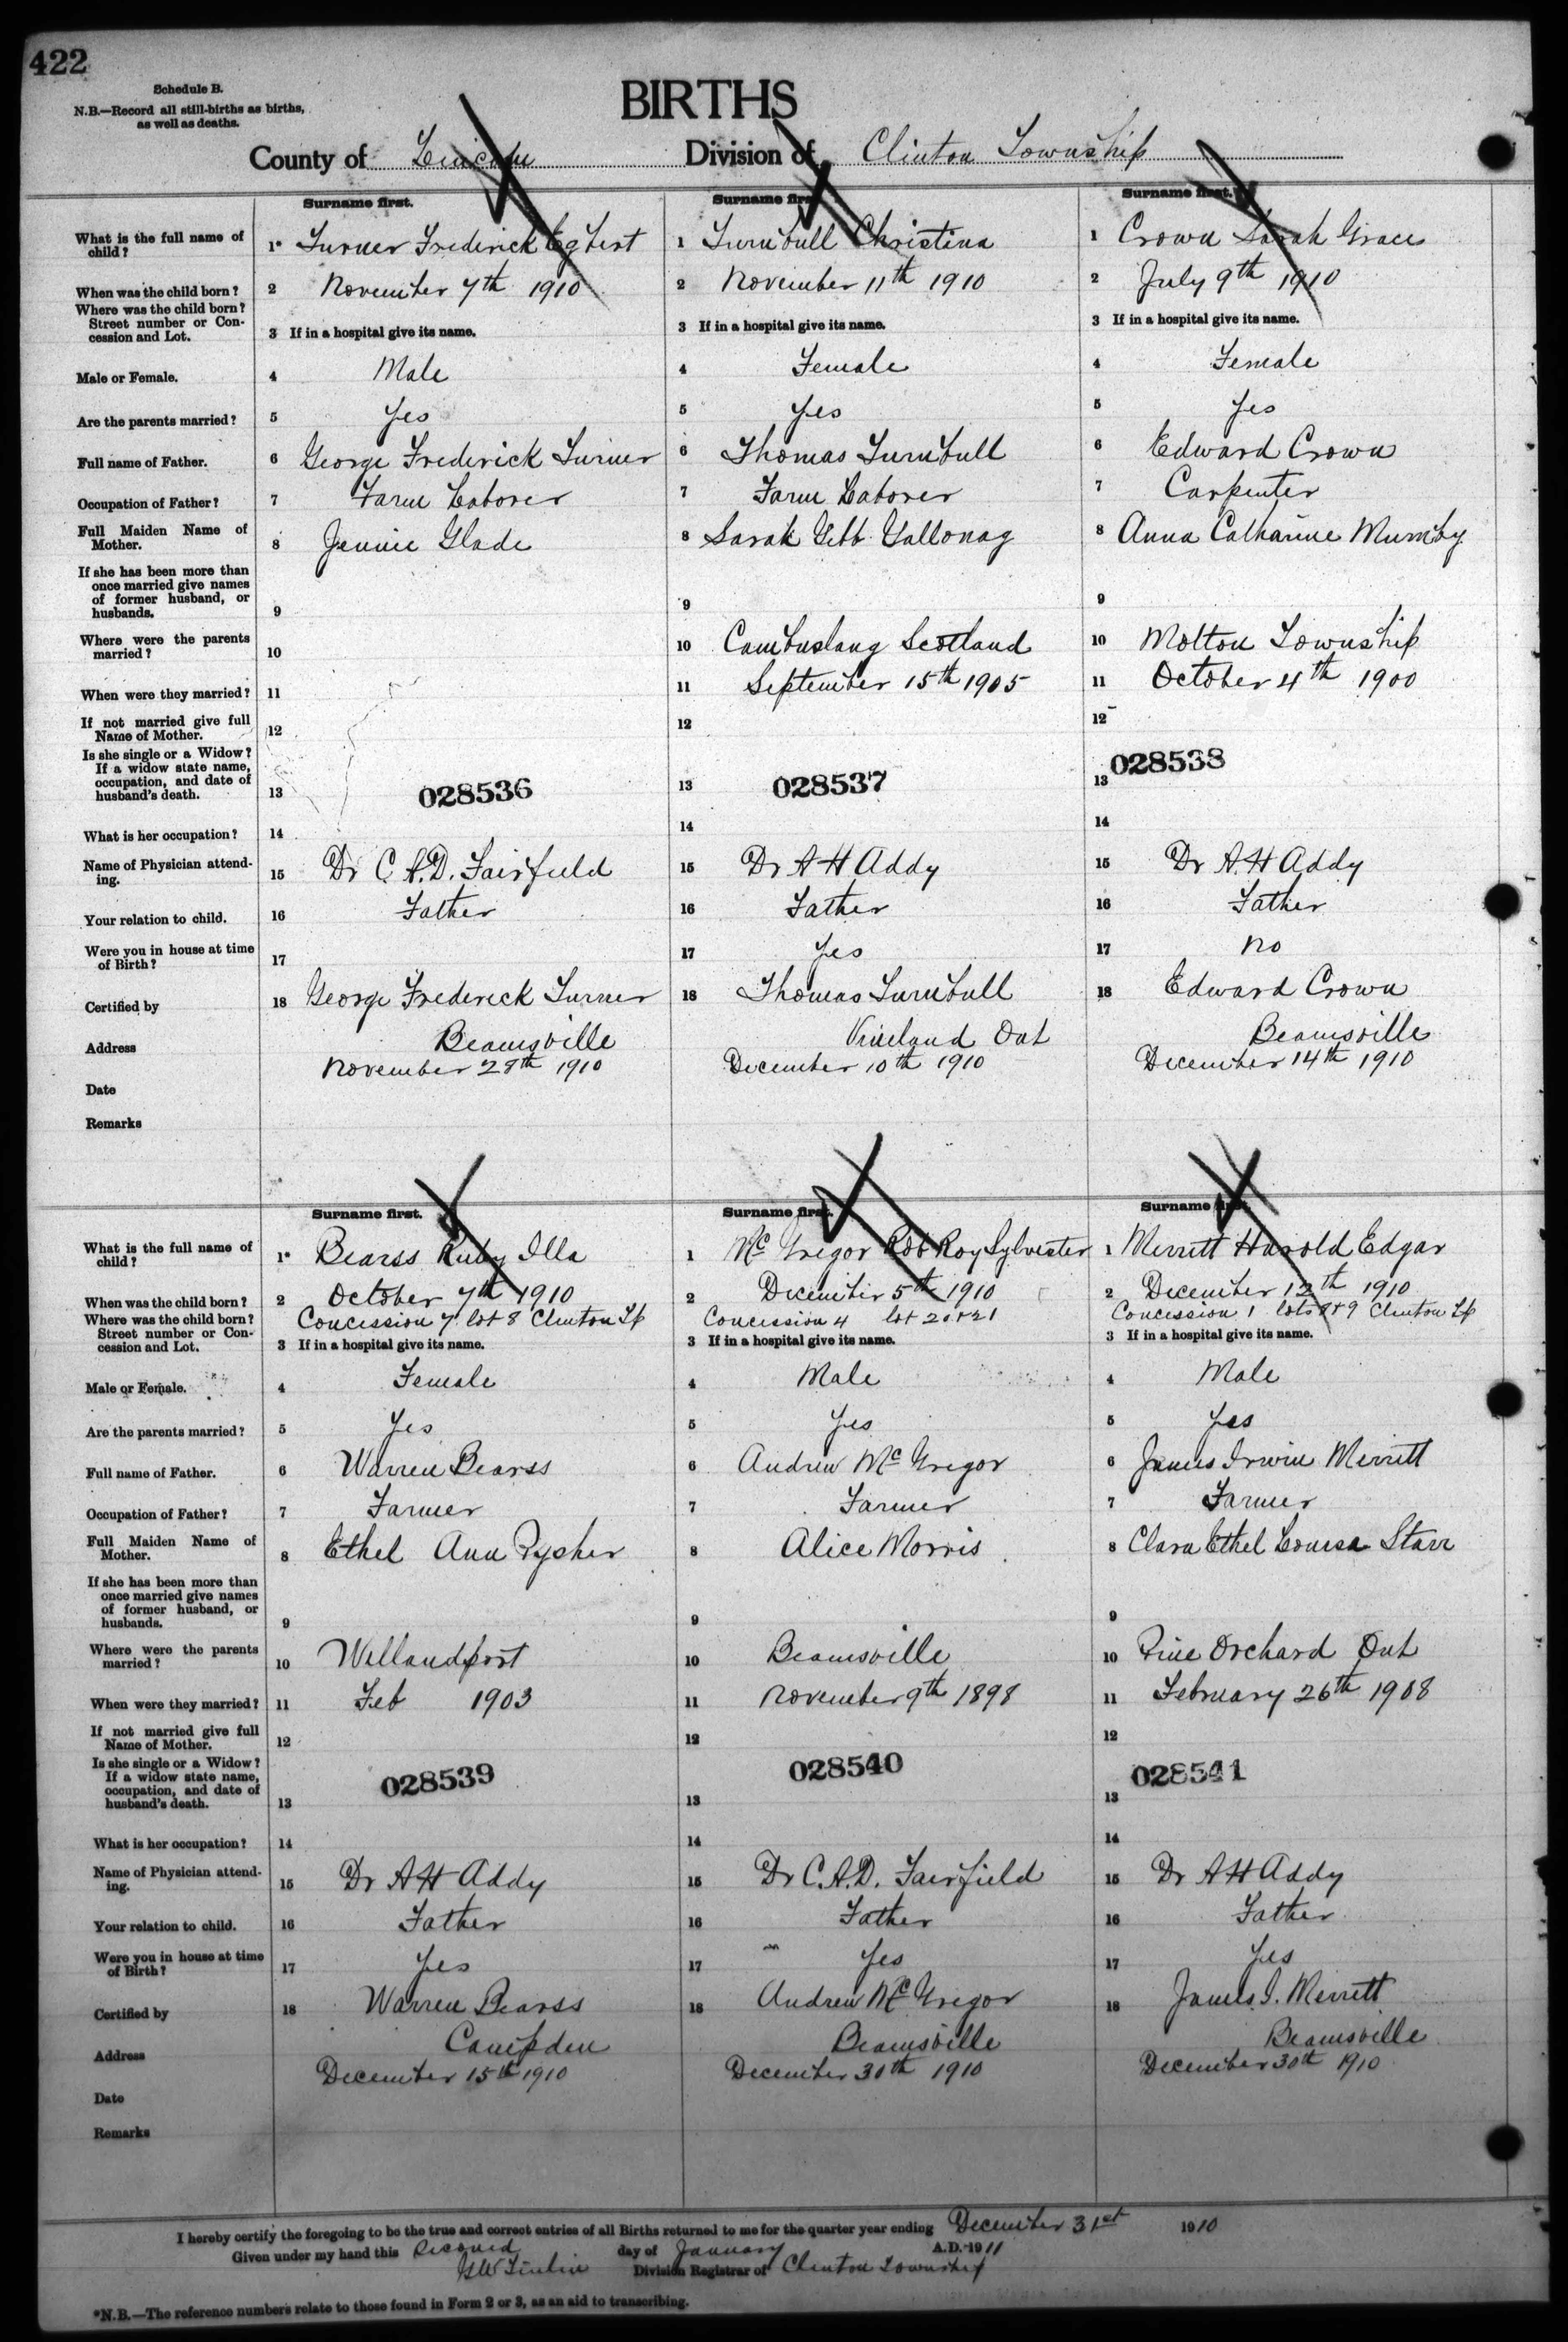 422
Schedule B.
N.B.—Record all still-births as births,
as well as deaths.
BIRTHS
County of Lincoln Division of Clinton Township
Surname first. Surname first. Surname first.
What is the full name of child? 1* Turner Frederick Egbert 1 Turnbull Christina 1 Crown Sarah Grace
When was the child born? 2 November 7th 1910 2 November 11th 1910 2 July 9th 1910
Where was the child born? Street number or Concession and Lot. 3 If in a hospital give its name. 3 If in a hospital give its name. 3 If in a hospital give its name.
Male or Female. 4 Male 4 Female 4 Female
Are the parents married? 5 Yes 5 Yes 5 Yes
Full name of Father. 6 George Frederick Turner 6 Thomas Turnbull 6 Edward Crown
Occupation of Father? 7 Farm Laborer 7 Farm Laborer 7 Carpenter
Full Maiden Name of Mother. 8 Jennie Glade 8 Sarah Gebb 8 Anna Catharine Mumby
If she has been more than once married give names of former husband, or husbands. 9 9 9
Where were the parents married? 10 10 Cambuslang Scotland 10 Molton Township
When were they married? 11 11 September 15th 1905 11 October 4th 1900
If not married give full Name of Mother. 12 12 12
Is she single or a Widow? If a widow state name, occupation, and date of husband's death. 13 028536 13 028537 13 028538
What is her occupation? 14 14 14
Name of Physician attending. 15 Dr C.A.D. Fairfield 15 Dr A H Addy 15 Dr A.H Addy
Your relation to child. 16 Father 16 Father 16 Father
Were you in house at time of Birth? 17 17 Yes 17 No
Certified by 18 George Frederick Turner 18 Thomas Turnbull 18 Edward Crown
Address Beamsville Vineland Ont Beamsville
Date November 28th 1910 December 10th 1910 December 14th 1910
Remarks
Surname first. Surname first. Surname first.
What is the full name of child? 1* Bearss Ruby Illa 1 McGregor Rob Roy Sylvester 1 Merritt Harold Edgar
When was the child born? 2 October 7th 1910 2 December 5th 1910 2 December 12th 1910
Where was the child born? Street number or Concession and Lot. Concession 7 lot 8 Clinton Tp Concession 4 lot 20+21 Concession 1 lots 8+9 Clinton Tp
3 If in a hospital give its name. 3 If in a hospital give its name. 3 If in a hospital give its name.
Male or Female. 4 Female 4 Male 4 Male
Are the parents married? 5 Yes 5 Yes 5 Yes
Full name of Father. 6 Warren Bearss 6 Andrew McGregor 6 James Irwin Merritt
Occupation of Father? 7 Farmer 7 Farmer 7 Farmer
Full Maiden Name of Mother. 8 Ethel Ann Rysher 8 Alice Morris 8 Clara Ethel Louisa Starr
If she has been more than once married give names of former husband, or husbands. 9 9 9
Where were the parents married? 10 Wellandport 10 Beamsville 10 Pine Orchard Ont
When were they married? 11 Feb 1903 11 November 9th 1898 11 February 26th 1908
If not married give full Name of Mother. 12 12 12
Is she single or a Widow? If a widow state name, occupation, and date of husband's death. 13 028539 13 028540 13 028541
What is her occupation? 14 14 14
Name of Physician attending. 15 Dr A H Addy 15 Dr C.A.D. Fairfield 15 Dr A H Addy
Your relation to child. 16 Father 16 Father 16 Father
Were you in house at time of Birth? 17 Yes 17 Yes 17 Yes
Certified by 18 Warren Bearss 18 Andrew McGregor 18 James I. Merritt
Address Campden Beamsville Beamsville
Date December 15th 1910 December 30th 1910 December 30th 1910
Remarks
I hereby certify the foregoing to be the true and correct entries of all Births returned to me for the quarter year ending December 31st 1910
Given under my hand this second day of January A.D. 1911
Division Registrar of Clinton Township
*N.B.—The reference numbers relate to those found in Form 2 or 3, as an aid to transcribing.